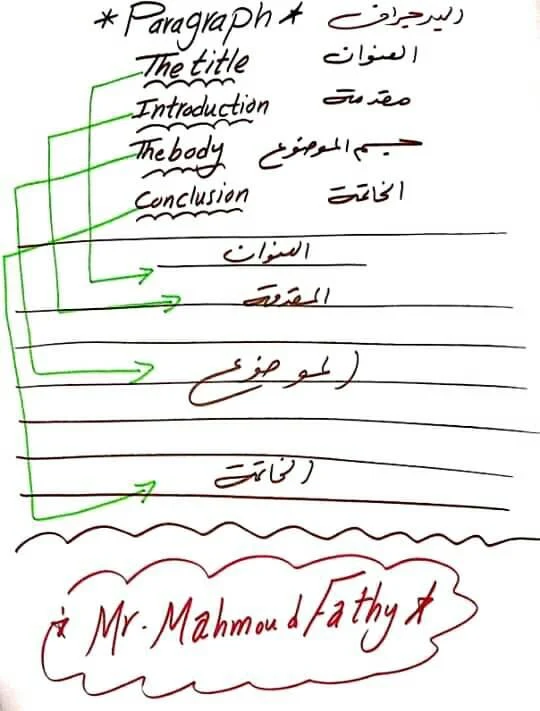 * Paragraph * البرجراف
The title العنوان
Introduction مقدمة
The body جسم الموضوع
Conclusion الخاتمة
العنوان
المقدمة
الموضوع
الخاتمة
* Mr. Mahmoud Fathy *